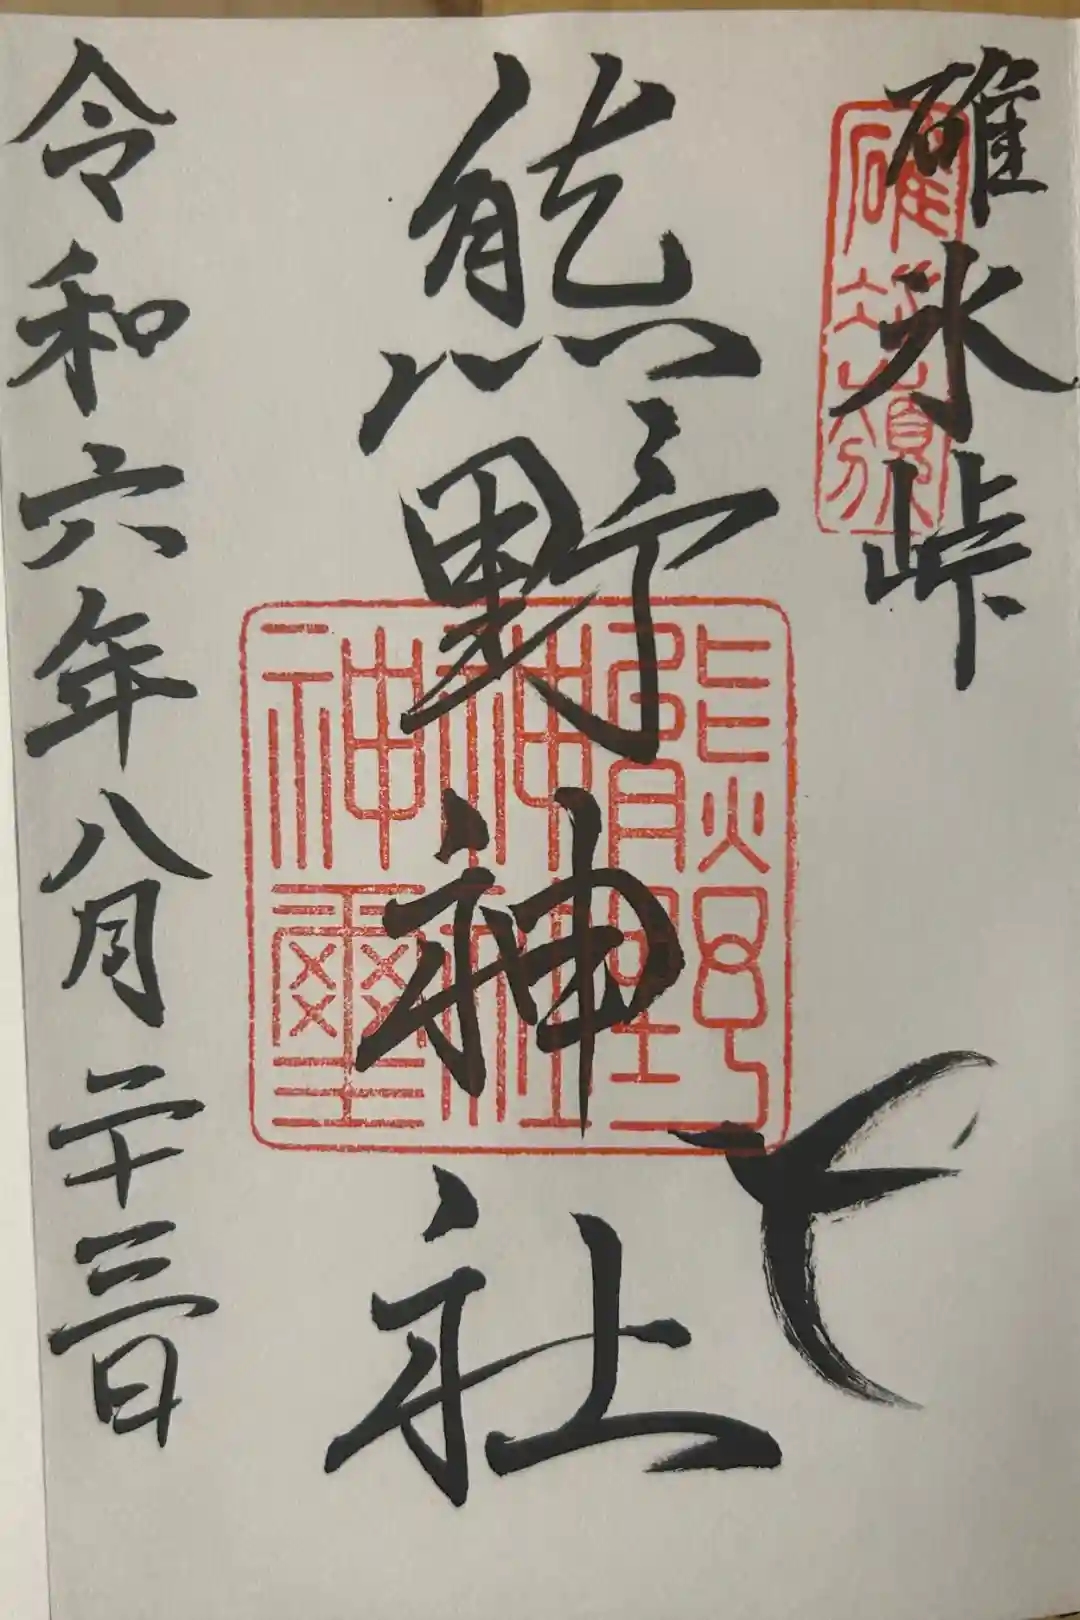 碓氷峠
熊野神社
熊野
神社
神璽
令和六年八月二十三日